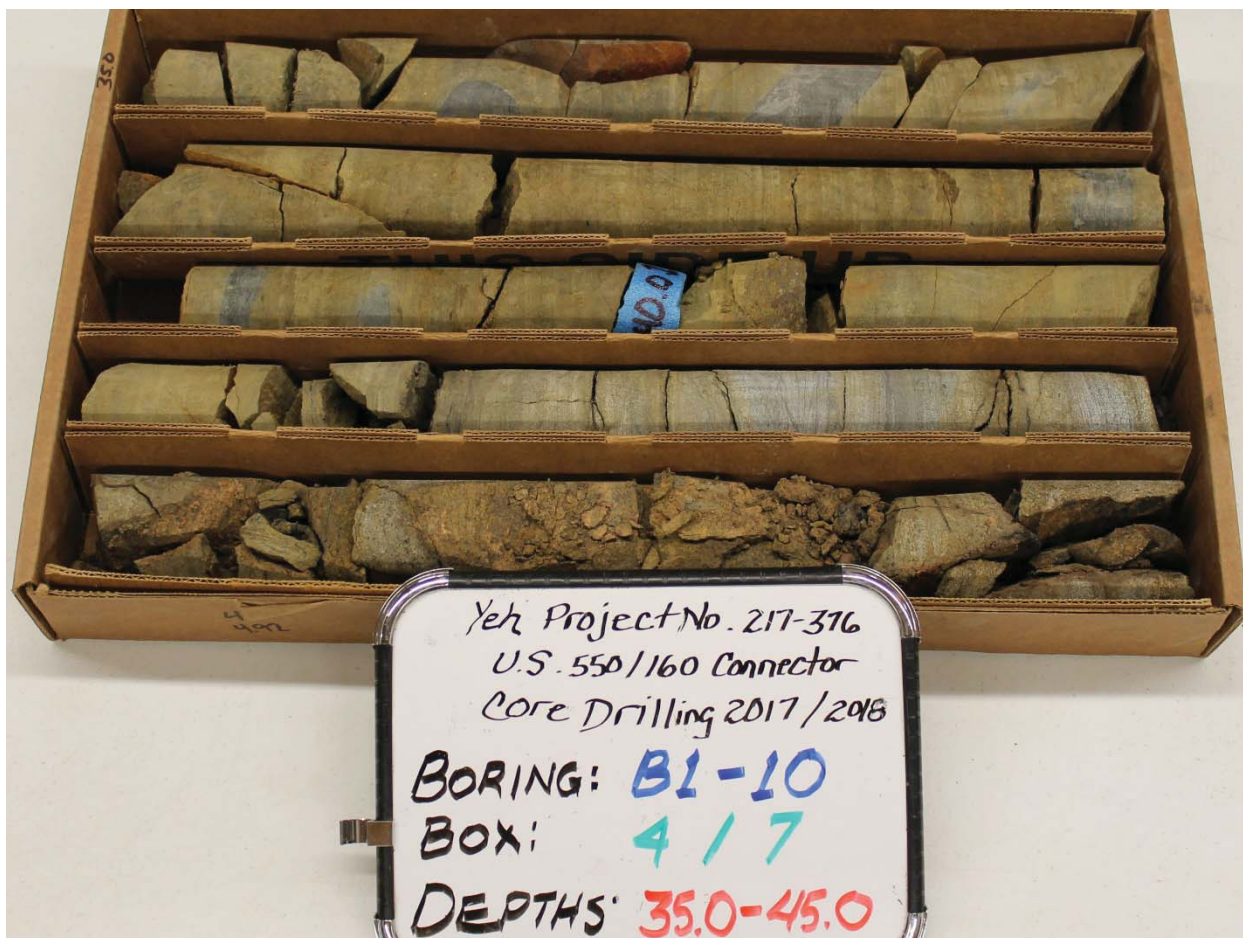 35.0
THIS SIDE UP
40.0
4
Yeh Project No. 217-376
U.S. 550/160 Connector
Core Drilling 2017/2018
BORING: B1-10
BOX: 4/7
DEPTHS: 35.0-45.0